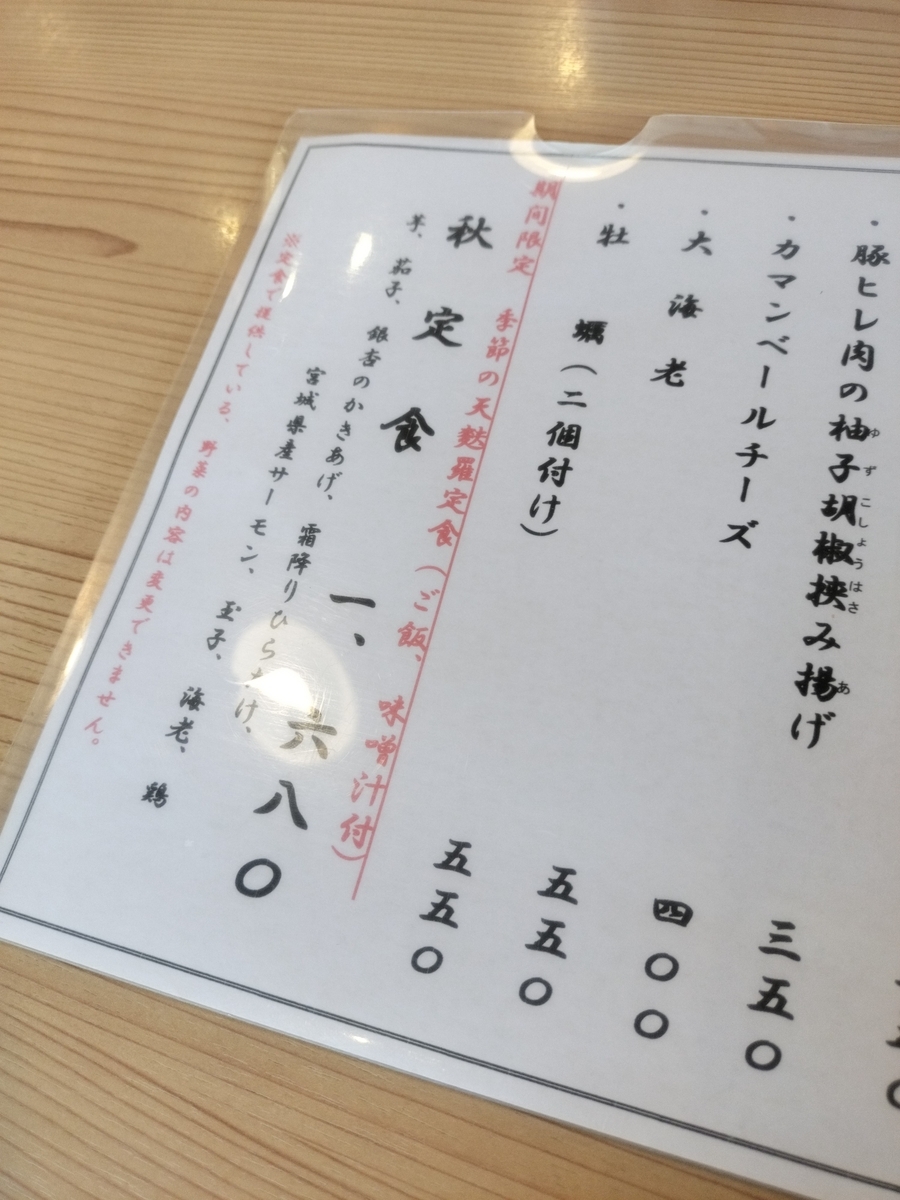 ・豚ヒレ肉の柚子胡椒挟み揚げ 三五〇
ゆずこしょうはさ あ
・カマンベールチーズ 四〇〇
・大海老 五五〇
・牡蠣（二個付け） 五五〇
期間限定 季節の天麩羅定食（ご飯、味噌汁付）
秋定食 一、六八〇
芋、茄子、銀杏のかきあげ、霜降りひらたけ、
宮城県産サーモン、玉子、海老、鶏
※定食で提供している、野菜の内容は変更できません。